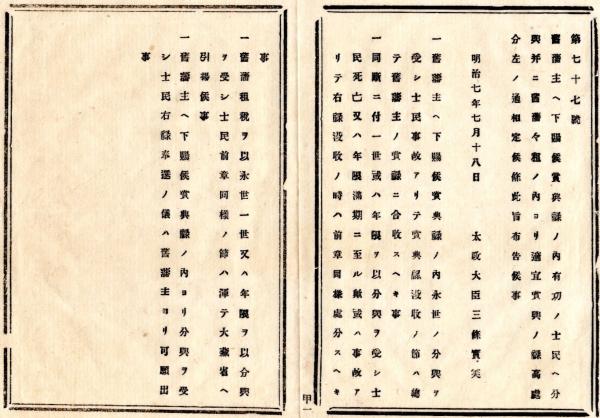 第七十七號
舊藩主ヘ下賜候賞典祿ノ內有功ノ士民ヘ分
與幷ニ舊藩々租ノ內ヨリ適宜賞與ノ祿高處
分左ノ通相定候條此旨布告候事
明治七年七月十八日 太政大臣三條實美
一舊藩主ヘ下賜候賞典祿ノ內永世ノ分與ヲ
受シ士民事故アリテ賞典祿沒收ノ節ハ總
テ舊藩主ノ賞祿ニ合收スヘキ事
一同斷ニ付一世或ハ年限ヲ以分與ヲ受シ士
民死亡又ハ年限滿期ニ至ル歟或ハ事故ア
リテ右祿沒收ノ時ハ前章同樣處分スヘキ
事
一舊藩租稅ヲ以永世一世又ハ年限ヲ以分與
ヲ受シ士民前章同樣ノ節ハ渾テ大藏省ヘ
引揚候事
一舊藩主ヘ下賜候賞典祿ノ內ヨリ分與ヲ受
シ士民右祿奉還ノ儀ハ舊藩主ヨリ可願出
事
甲一